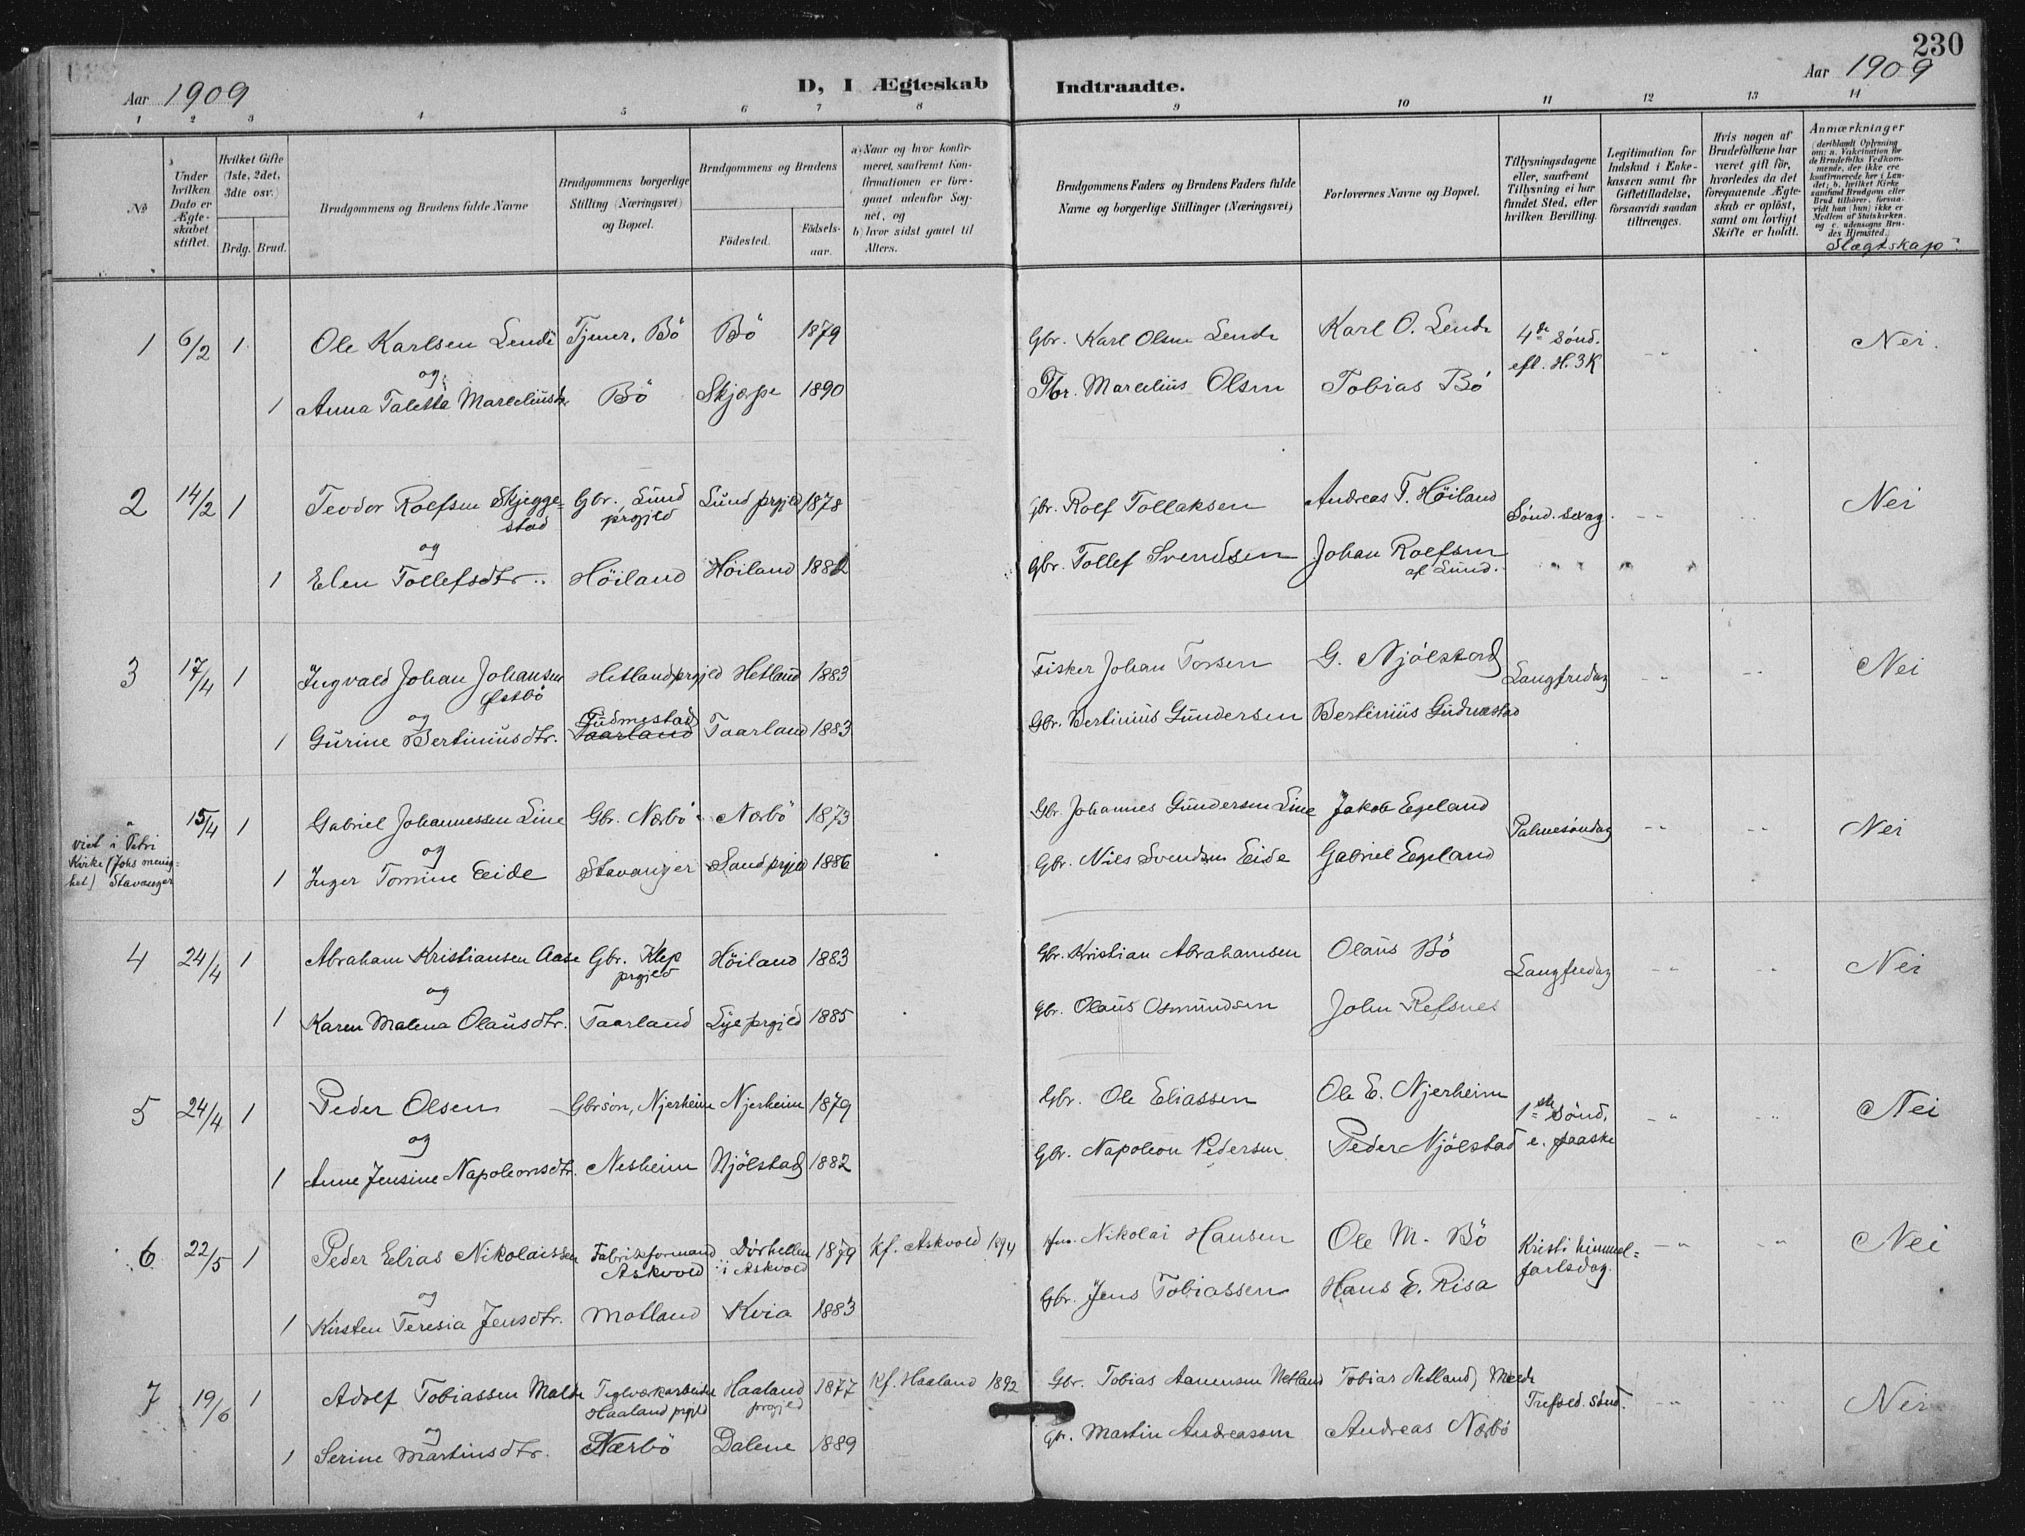 230
Aar 1909
D, I Ægteskab Indtraadte.
Aar 1909
1 2 3 4 5 6 7 8 9 10 11 12 13 14
No
Under hvilken Dato er Ægteskabet stiftet.
Hvilket Gifte (1ste, 2det, 3die osv.)
Brdg. Brud.
Brudgommens og Brudens fulde Navne
Brudgommens borgerlige Stilling (Næringsvei) og Bopæl.
Brudgommens og Brudens
Fødested. Fødselsaar.
a) Naar og hvor konfirmeret, saafremt Konfirmationen er foregaaet udenfor Sognet, og
b) hvor sidst gaaet til Alters.
Brudgommens Faders og Brudens Faders fulde Navne og borgerlige Stillinger (Næringsvei)
Forlovernes Navne og Bopæl.
Tillysningsdagene eller, saafremt Tillysning ei har fundet Sted, efter hvilken Bevilling.
Legitimation for Indskud i Enkekassen samt for Giftetilladelse, forsaavidt saadan tiltrænges.
Hvis nogen af Brudefolkene har været gift før, hvorledes da det foregaaende Ægteskab er opløst, samt om lovligt Skifte er holdt.
Anmærkninger
(deriblandt Oplysning om: a. Vakcination for de Brudefolks Vedkommende, der ikke ere konfirmerede her i Landet; b. hvilket Kirkesamfund Brudgom eller Brud tilhører, forsaavidt han (hun) ikke er Medlem af Statskirken, og c. udensogns Brudes Hjemsted.)
Slægtskap
1 6/2 1 Ole Karlsen Lende Tjener, Bö Bö 1879 Gbr. Karl Olsen Lende Karl O. Lende 4de Sönd. eft. H. 3 K Nei.
og
1 Anna Taletta Marceliusdtr Bö Skjæpe 1890 Fbr. Marcelius Olsen Tobias Bö
2 14/2 1 Teodor Rolfsen Skjeggestad Gbr. Lund prgjeld Lund prgjeld 1878 Gbr. Rolf Tollaksen Andreas T. Höiland Sönd. sexag. Nei
og
1 Elen Tollefsdtr. Höiland Höiland 1882 Gbr. Tollef Svendsen Johan Rolfsen af Lund.
3 17/4 1 Ingvald Johan Johansen Østbö Hetland prgjeld Hetland 1883 Fisker Johan Torsen G. Njölstad Langfredag Nei
og
1 Gurine Bertiniusdtr. Gudmestad Taarland Taarland 1883 Gbr. Bertinius Gundersen Bertinius Gudmestad
viet i Petri Kirke (Johs menighet) Stavanger
15/4 1 Gabriel Johannessen Line Gbr. Nærbö Nærbö 1873 Gbr. Johannes Gundersen Line Jakob Egeland Palmesöndag Nei
og
1 Inger Tomine Eide Stavanger Sand prgjeld 1886 Gbr. Nils Svendsen Eide Gabriel Egeland
4 24/4 1 Abraham Kristiansen Aase Gbr. Klep prgjeld Höiland 1883 Gbr. Kristian Abrahamsen Olaus Bö Langfredag Nei
og
1 Karen Malena Olausdtr. Taarland Lye prgjeld 1885 Gbr. Olaus Osmundsen John Refsnes
5 24/4 1 Peder Olsen Gbrsön, Njerheim Njerheim 1879 Gbr. Ole Eliassen Ole E. Njerheim 1ste Sönd. e. paaske Nei
og
1 Anne Jensine Napoleonsdtr. Nesheim Njölstad 1882 Gbr. Napoleon Pedersen Peder Njölstad
6 22/5 1 Peder Elias Nikolaissen Fabrikformand Askvold i Askvold 1879 Kf. Askvold 1894 Nikolai Hansen Ole M. Bö Kristi himmelfartsdag. Nei
og
1 Kirsten Teresia Jensdtr. Motland Kvia 1883 Gbr. Jens Tobiassen Hans E. Risa
7 19/6 1 Adolf Tobiassen Malde Teglværkarbeider Haaland prgjld Haaland prgjeld 1877 Kf. Haaland 1892 Gbr. Tobias Aanensen Netland Tobias Netland, Malde Trefold. Sönd. Nei
og
1 Serine Martinsdtr. Nærbö Dalene 1889 Gbr. Martin Andreassen Andreas Nærbö